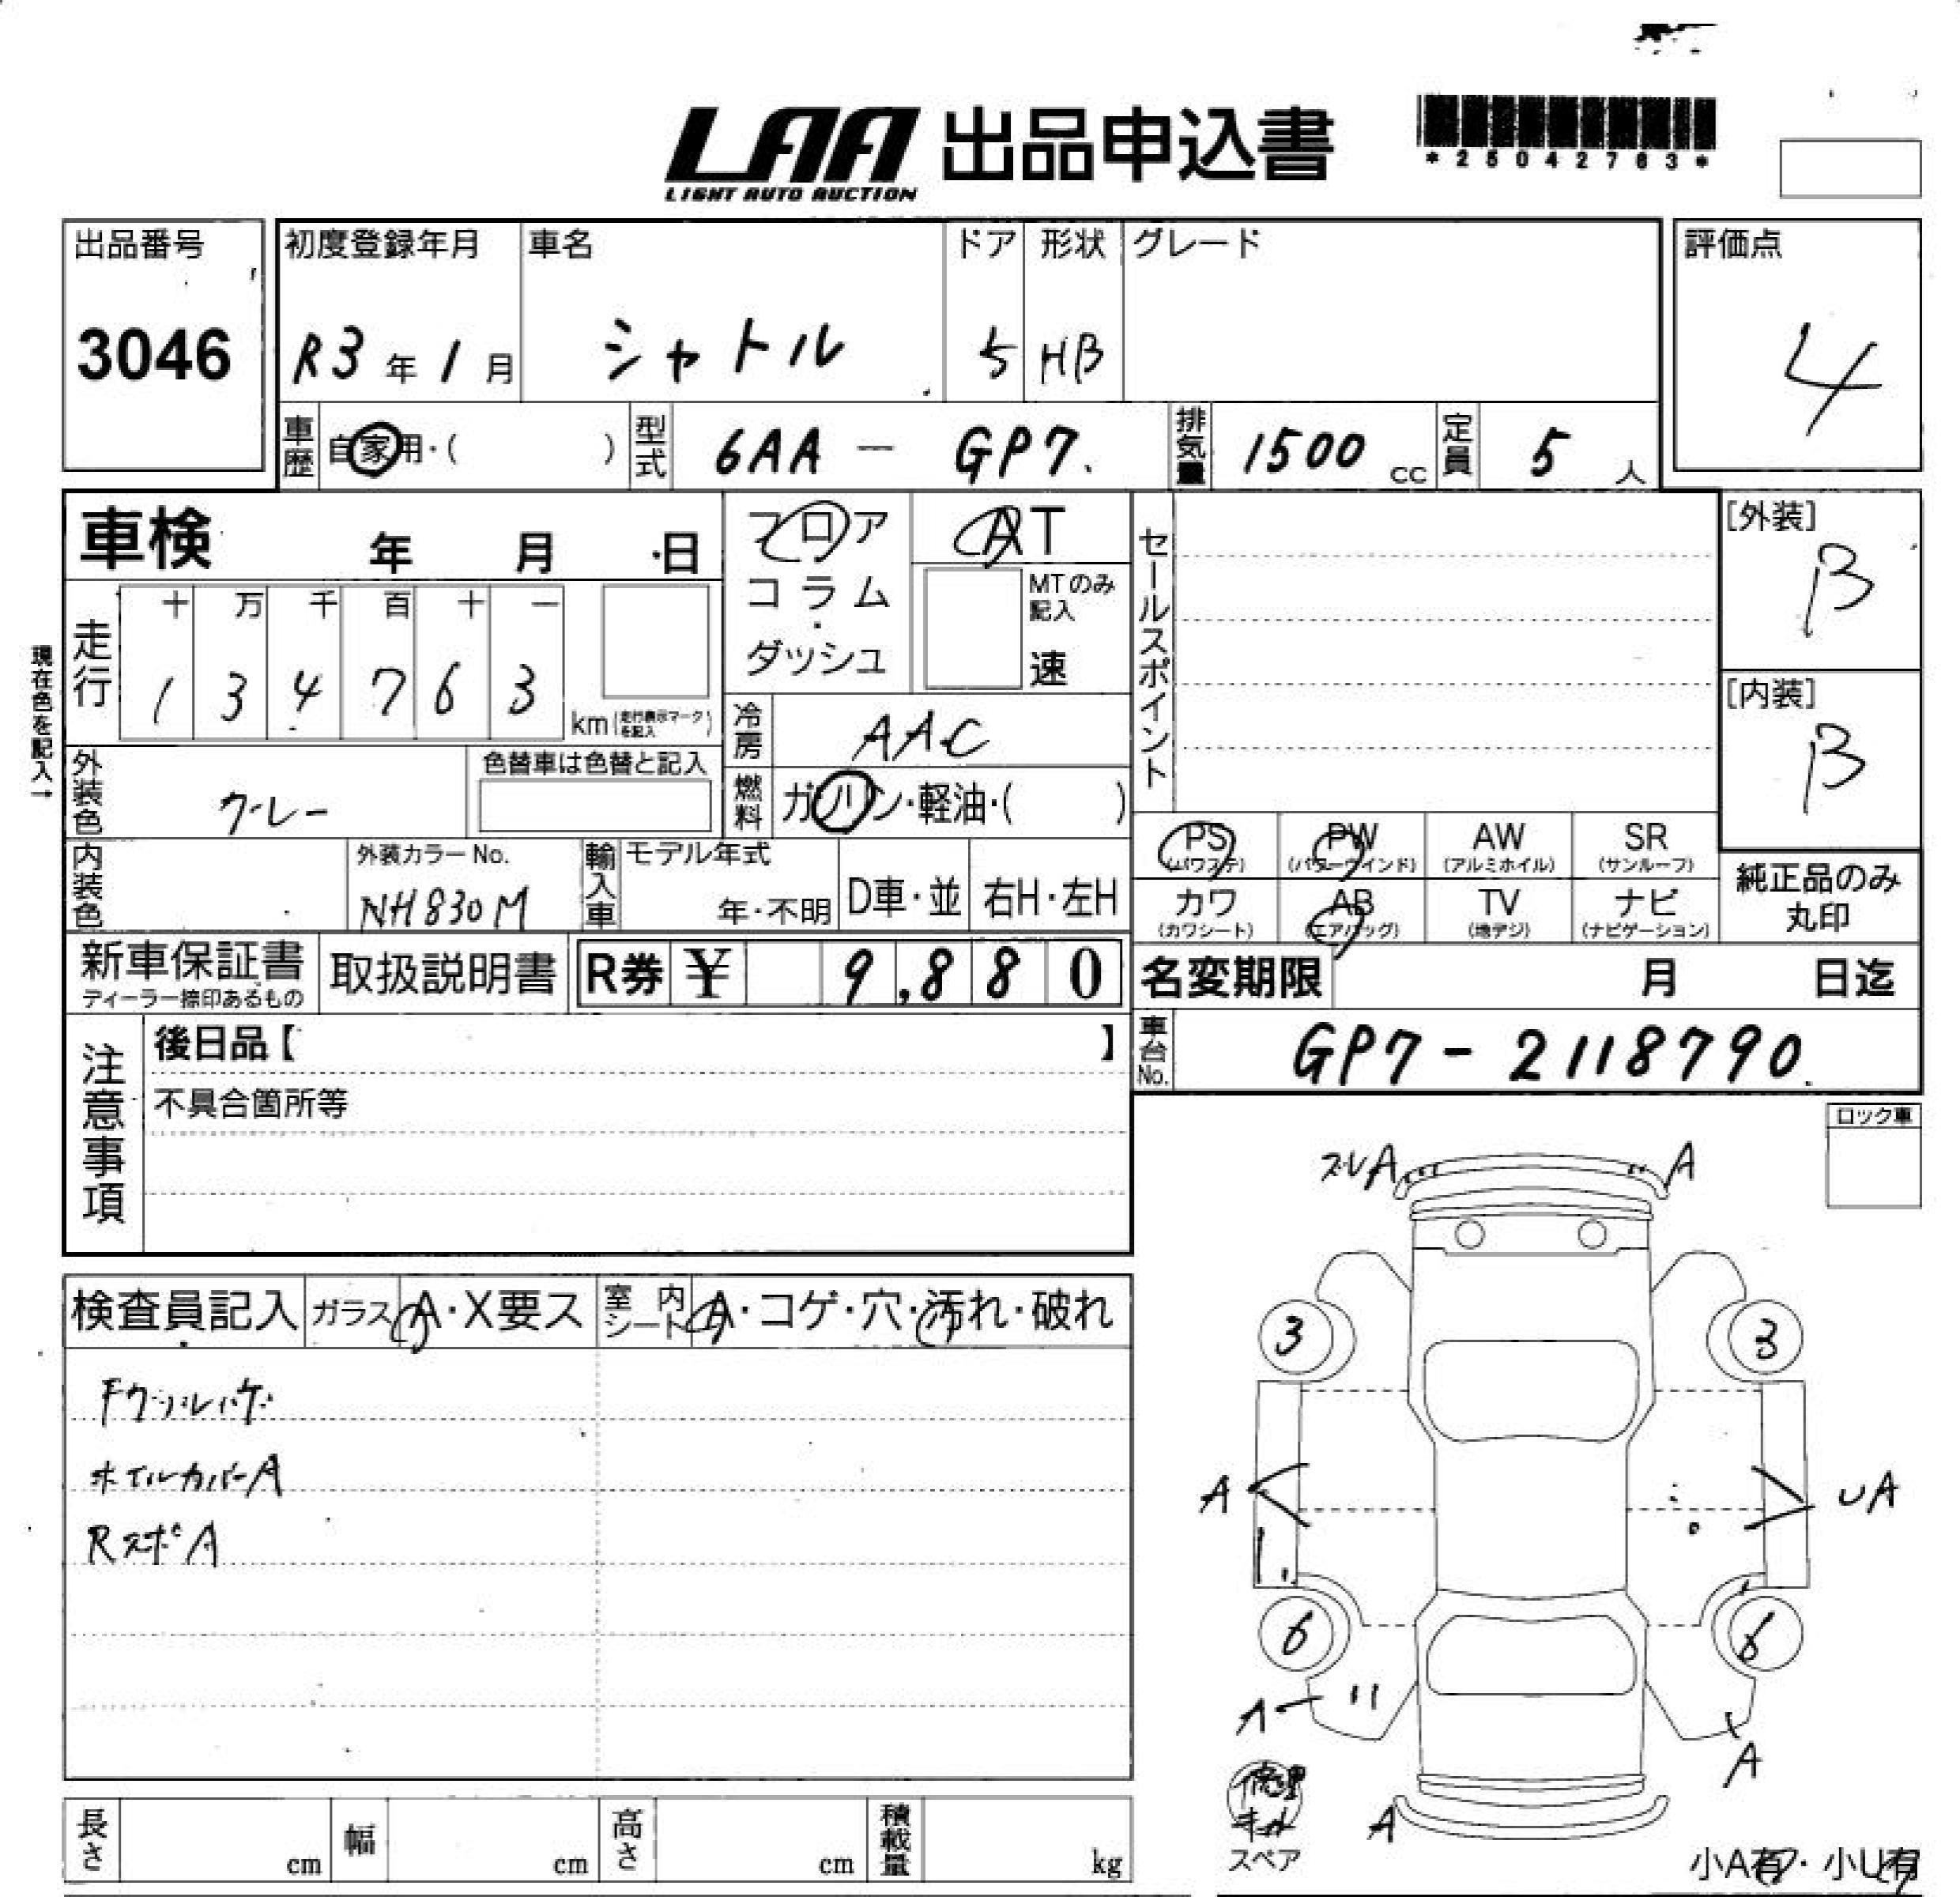 LAA 出品申込書
LIGHT AUTO AUCTION
*25042763*
出品番号 初度登録年月 車名 ドア 形状 グレード 評価点
3046 R3年1月 シャトル 5 HB 4
車歴 自家用・( ) 型式 6AA - GP7. 排気量 1500 cc 定員 5 人
車検 年 月 日
フロア
コラム
ダッシュ
AT
MTのみ
記入
速
セールスポイント
[外装]
B
[内装]
B
現在色を記入→
走行 十 万 千 百 十 一
1 3 4 7 6 3 km (走行表示マークを記入)
冷房 AAC
外装色 グレー 色替車は色替と記入
燃料 ガソリン・軽油・( )
内装色 外装カラーNo. NH830M
輸入車 モデル年式 年・不明 D車・並 右H・左H
PS (パワステ) PW (パワーウインド) AW (アルミホイル) SR (サンルーフ)
カワ (カワシート) AB (エアバッグ) TV (地デジ) ナビ (ナビゲーション)
純正品のみ
丸印
新車保証書
ディーラー捺印あるもの
取扱説明書 R券 ¥ 9,880
名変期限 月 日迄
車台No. GP7-2118790.
注意事項
後日品【 】
不具合箇所等
ロック車
検査員記入 ガラス A・X要ス 室内シート A・コゲ・穴・汚れ・破れ
ホイルカバーA
RスポA
A A
3 3
A UA
6 6
A
A
A
修理キット
スペア
小A有・小U有
長さ cm 幅 cm 高さ cm 積載量 kg